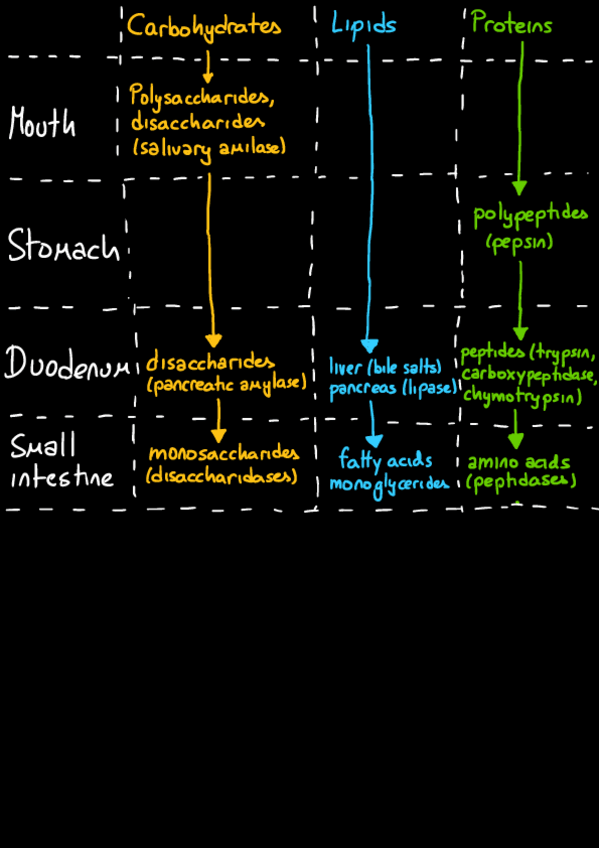 Carbohydrates Lipids Proteins
Mouth
Polysaccharides,
disaccharides
(salivary amilase)
Stomach
polypeptides
(pepsin)
Duodenum
disaccharides
(pancreatic amylase)
liver (bile salts)
pancreas (lipase)
peptides (trypsin,
carboxypeptidase,
chymotrypsin)
Small
intestine
monosaccharides
(disaccharidases)
fatty acids
monoglycerides
amino acids
(peptidases)